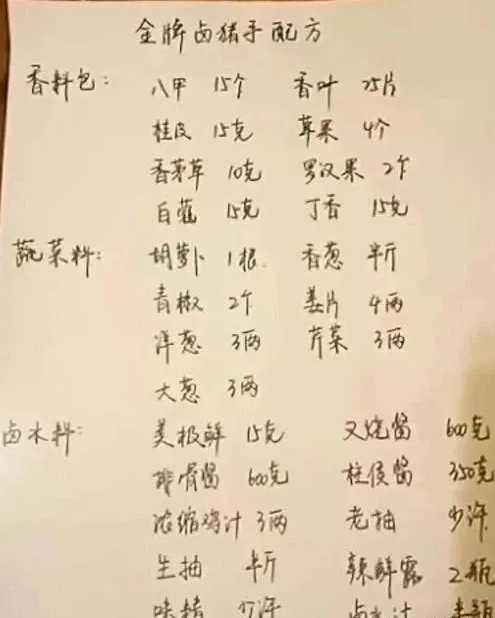 金牌卤猪手配方
香料包: 八甲 15个 香叶 25片
桂皮 15克 草果 4个
香茅草 10克 罗汉果 2个
白蔻 15克 丁香 15克
蔬菜料: 胡萝卜 1根 香葱 半斤
青椒 2个 姜片 4两
洋葱 3两 芹菜 3两
大葱 3两
卤水料: 美极鲜 15克 叉烧酱 600克
排骨酱 600克 柱侯酱 350克
浓缩鸡汁 3两 老抽 少许
生抽 半斤 辣鲜露 2瓶
味精 少许 卤水汁 半瓶